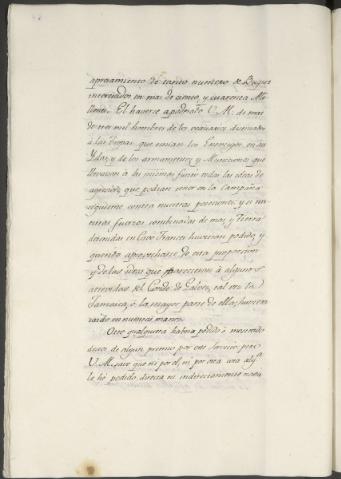 apresamiento de tanto numero de Buques
interesados en mas de ciento, y cuarenta Mi
llones. El haverse apoderado V. M. de mas
de tres mil hombres de los enviados destinados
á las tropas que tenian los Enemigos en sus
Yslas, y de los armamentos y Municiones que
llevavan á las mismas fustró todas las ideas de
agresión que podian tener en la Campaña
siguiente contra nuestras posesiones, y si nu
estras fuerzas combinadas de mar, y Tierra
detenidas en Cavo Frances huvieran podido, y
querido aprovecharse de esta proporcion
y de las ideas que parecieron á algunos
atrevidas del Conde de Galvez, tal vez la
Jamaica, ó la mayor parte de ella, huviera
caido en nuestras manos.
Otro qualquiera habria pedido ó mostrado
deseo de algun premio por este servicio pero
V. M. save que ni por el, ni por otra cosa alg.ª
le hé pedido directa ni indirectamente nada